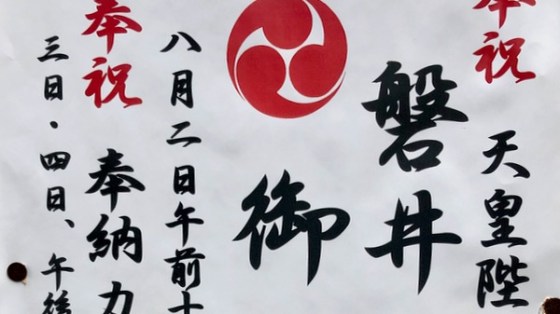 奉祝 天皇陛
磐井
御
八月二日午前十
奉祝 奉納力
三日・四日、午後